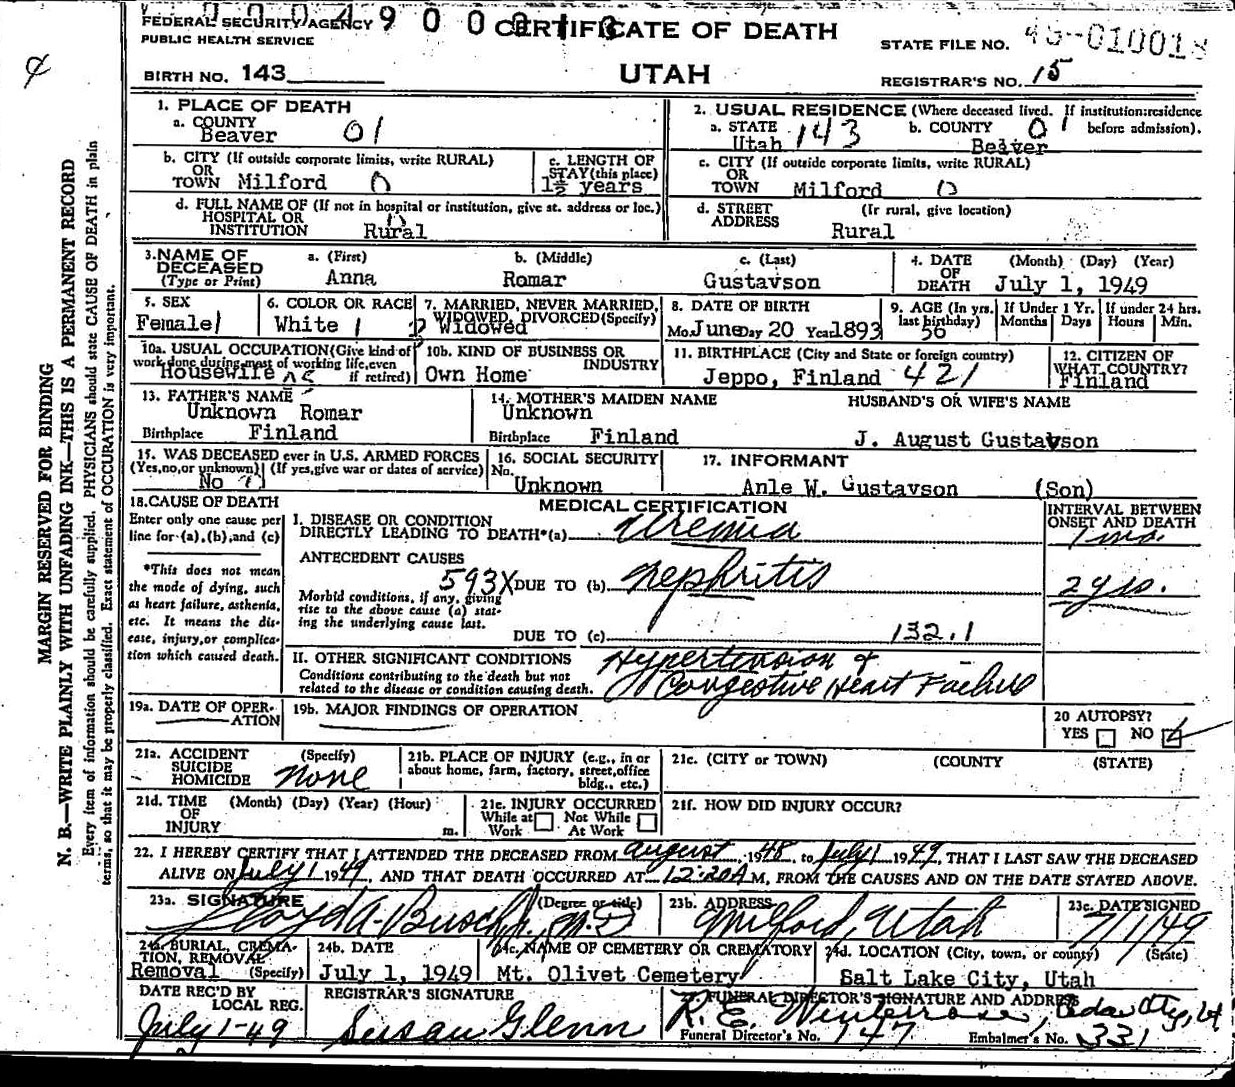 FEDERAL SECURITY AGENCY
PUBLIC HEALTH SERVICE
9 0 0 0
CERTIFICATE OF DEATH
STATE FILE NO. 49-010018
BIRTH NO. 143
UTAH
REGISTRAR'S NO. 15
MARGIN RESERVED FOR BINDING
N. B.—WRITE PLAINLY WITH UNFADING INK—THIS IS A PERMANENT RECORD
Every item of information should be carefully supplied. PHYSICIANS should state CAUSE OF DEATH in plain
terms, so that it may be properly classified. Exact statement of OCCUPATION is very important.
1. PLACE OF DEATH
a. COUNTY
Beaver 01
2. USUAL RESIDENCE (Where deceased lived. If institution:residence
before admission).
a. STATE Utah 143 b. COUNTY Beaver 01
b. CITY (If outside corporate limits, write RURAL)
OR
TOWN Milford 0
c. LENGTH OF
STAY (this place)
1½ years
c. CITY (If outside corporate limits, write RURAL)
OR
TOWN Milford 0
d. FULL NAME OF (If not in hospital or institution, give st. address or loc.)
HOSPITAL OR
INSTITUTION Rural
d. STREET (If rural, give location)
ADDRESS Rural
3. NAME OF
DECEASED
(Type or Print)
a. (First) b. (Middle) c. (Last)
Anna Romar Gustavson
4. DATE (Month) (Day) (Year)
OF
DEATH July 1, 1949
5. SEX
Female 1
6. COLOR OR RACE
White 1
7. MARRIED, NEVER MARRIED,
WIDOWED, DIVORCED (Specify)
Widowed
8. DATE OF BIRTH
Mo. June Day 20 Year 1893
9. AGE (In yrs.
last birthday)
56
If Under 1 Yr.
Months Days
If under 24 hrs.
Hours Min.
10a. USUAL OCCUPATION (Give kind of
work done during most of working life, even
if retired)
Housewife
10b. KIND OF BUSINESS OR
INDUSTRY
Own Home
11. BIRTHPLACE (City and State or foreign country)
Jeppo, Finland 421
12. CITIZEN OF
WHAT COUNTRY?
Finland
13. FATHER'S NAME
Unknown Romar
Birthplace Finland
14. MOTHER'S MAIDEN NAME
Unknown
Birthplace Finland
HUSBAND'S OR WIFE'S NAME
J. August Gustavson
15. WAS DECEASED ever in U.S. ARMED FORCES
(Yes, no, or unknown) (If yes, give war or dates of service)
No
16. SOCIAL SECURITY
No.
Unknown
17. INFORMANT
Anle W. Gustavson (Son)
18. CAUSE OF DEATH
Enter only one cause per
line for (a), (b), and (c)
*This does not mean
the mode of dying, such
as heart failure, asthenia,
etc. It means the dis-
ease, injury, or complica-
tion which caused death.
MEDICAL CERTIFICATION
INTERVAL BETWEEN
ONSET AND DEATH
I. DISEASE OR CONDITION
DIRECTLY LEADING TO DEATH*(a) Uremia 1 mo.
ANTECEDENT CAUSES
593X DUE TO (b) Nephritis 2 yrs.
Morbid conditions, if any, giving
rise to the above cause (a) stat-
ing the underlying cause last.
DUE TO (c) 132.1
II. OTHER SIGNIFICANT CONDITIONS
Conditions contributing to the death but not
related to the disease or condition causing death.
Hypertension &
Congestive Heart Failure
19a. DATE OF OPER-
ATION
19b. MAJOR FINDINGS OF OPERATION
20 AUTOPSY?
YES NO
21a. ACCIDENT (Specify)
SUICIDE
HOMICIDE None
21b. PLACE OF INJURY (e.g., in or
about home, farm, factory, street, office
bldg., etc.)
21c. (CITY or TOWN) (COUNTY) (STATE)
21d. TIME (Month) (Day) (Year) (Hour)
OF
INJURY m.
21e. INJURY OCCURRED
While at Not While
Work At Work
21f. HOW DID INJURY OCCUR?
22. I HEREBY CERTIFY THAT I ATTENDED THE DECEASED FROM August, 1948, to July 1 1949, THAT I LAST SAW THE DECEASED
ALIVE ON July 1 1949, AND THAT DEATH OCCURRED AT 12:20A M, FROM THE CAUSES AND ON THE DATE STATED ABOVE.
23a. SIGNATURE (Degree or title)
M.D.
23b. ADDRESS
Milford, Utah
23c. DATE SIGNED
7/1/49
24a. BURIAL, CREMA-
TION, REMOVAL
Removal (Specify)
24b. DATE
July 1, 1949
24c. NAME OF CEMETERY OR CREMATORY
Mt. Olivet Cemetery
24d. LOCATION (City, town, or county) (State)
Salt Lake City, Utah
DATE REC'D BY
LOCAL REG.
July 1-49
REGISTRAR'S SIGNATURE
Susan Glenn
25. FUNERAL DIRECTOR'S SIGNATURE AND ADDRESS
R. E. Winterrose, Cedar City, Ut
Funeral Director's No. 147 Embalmer's No. 331